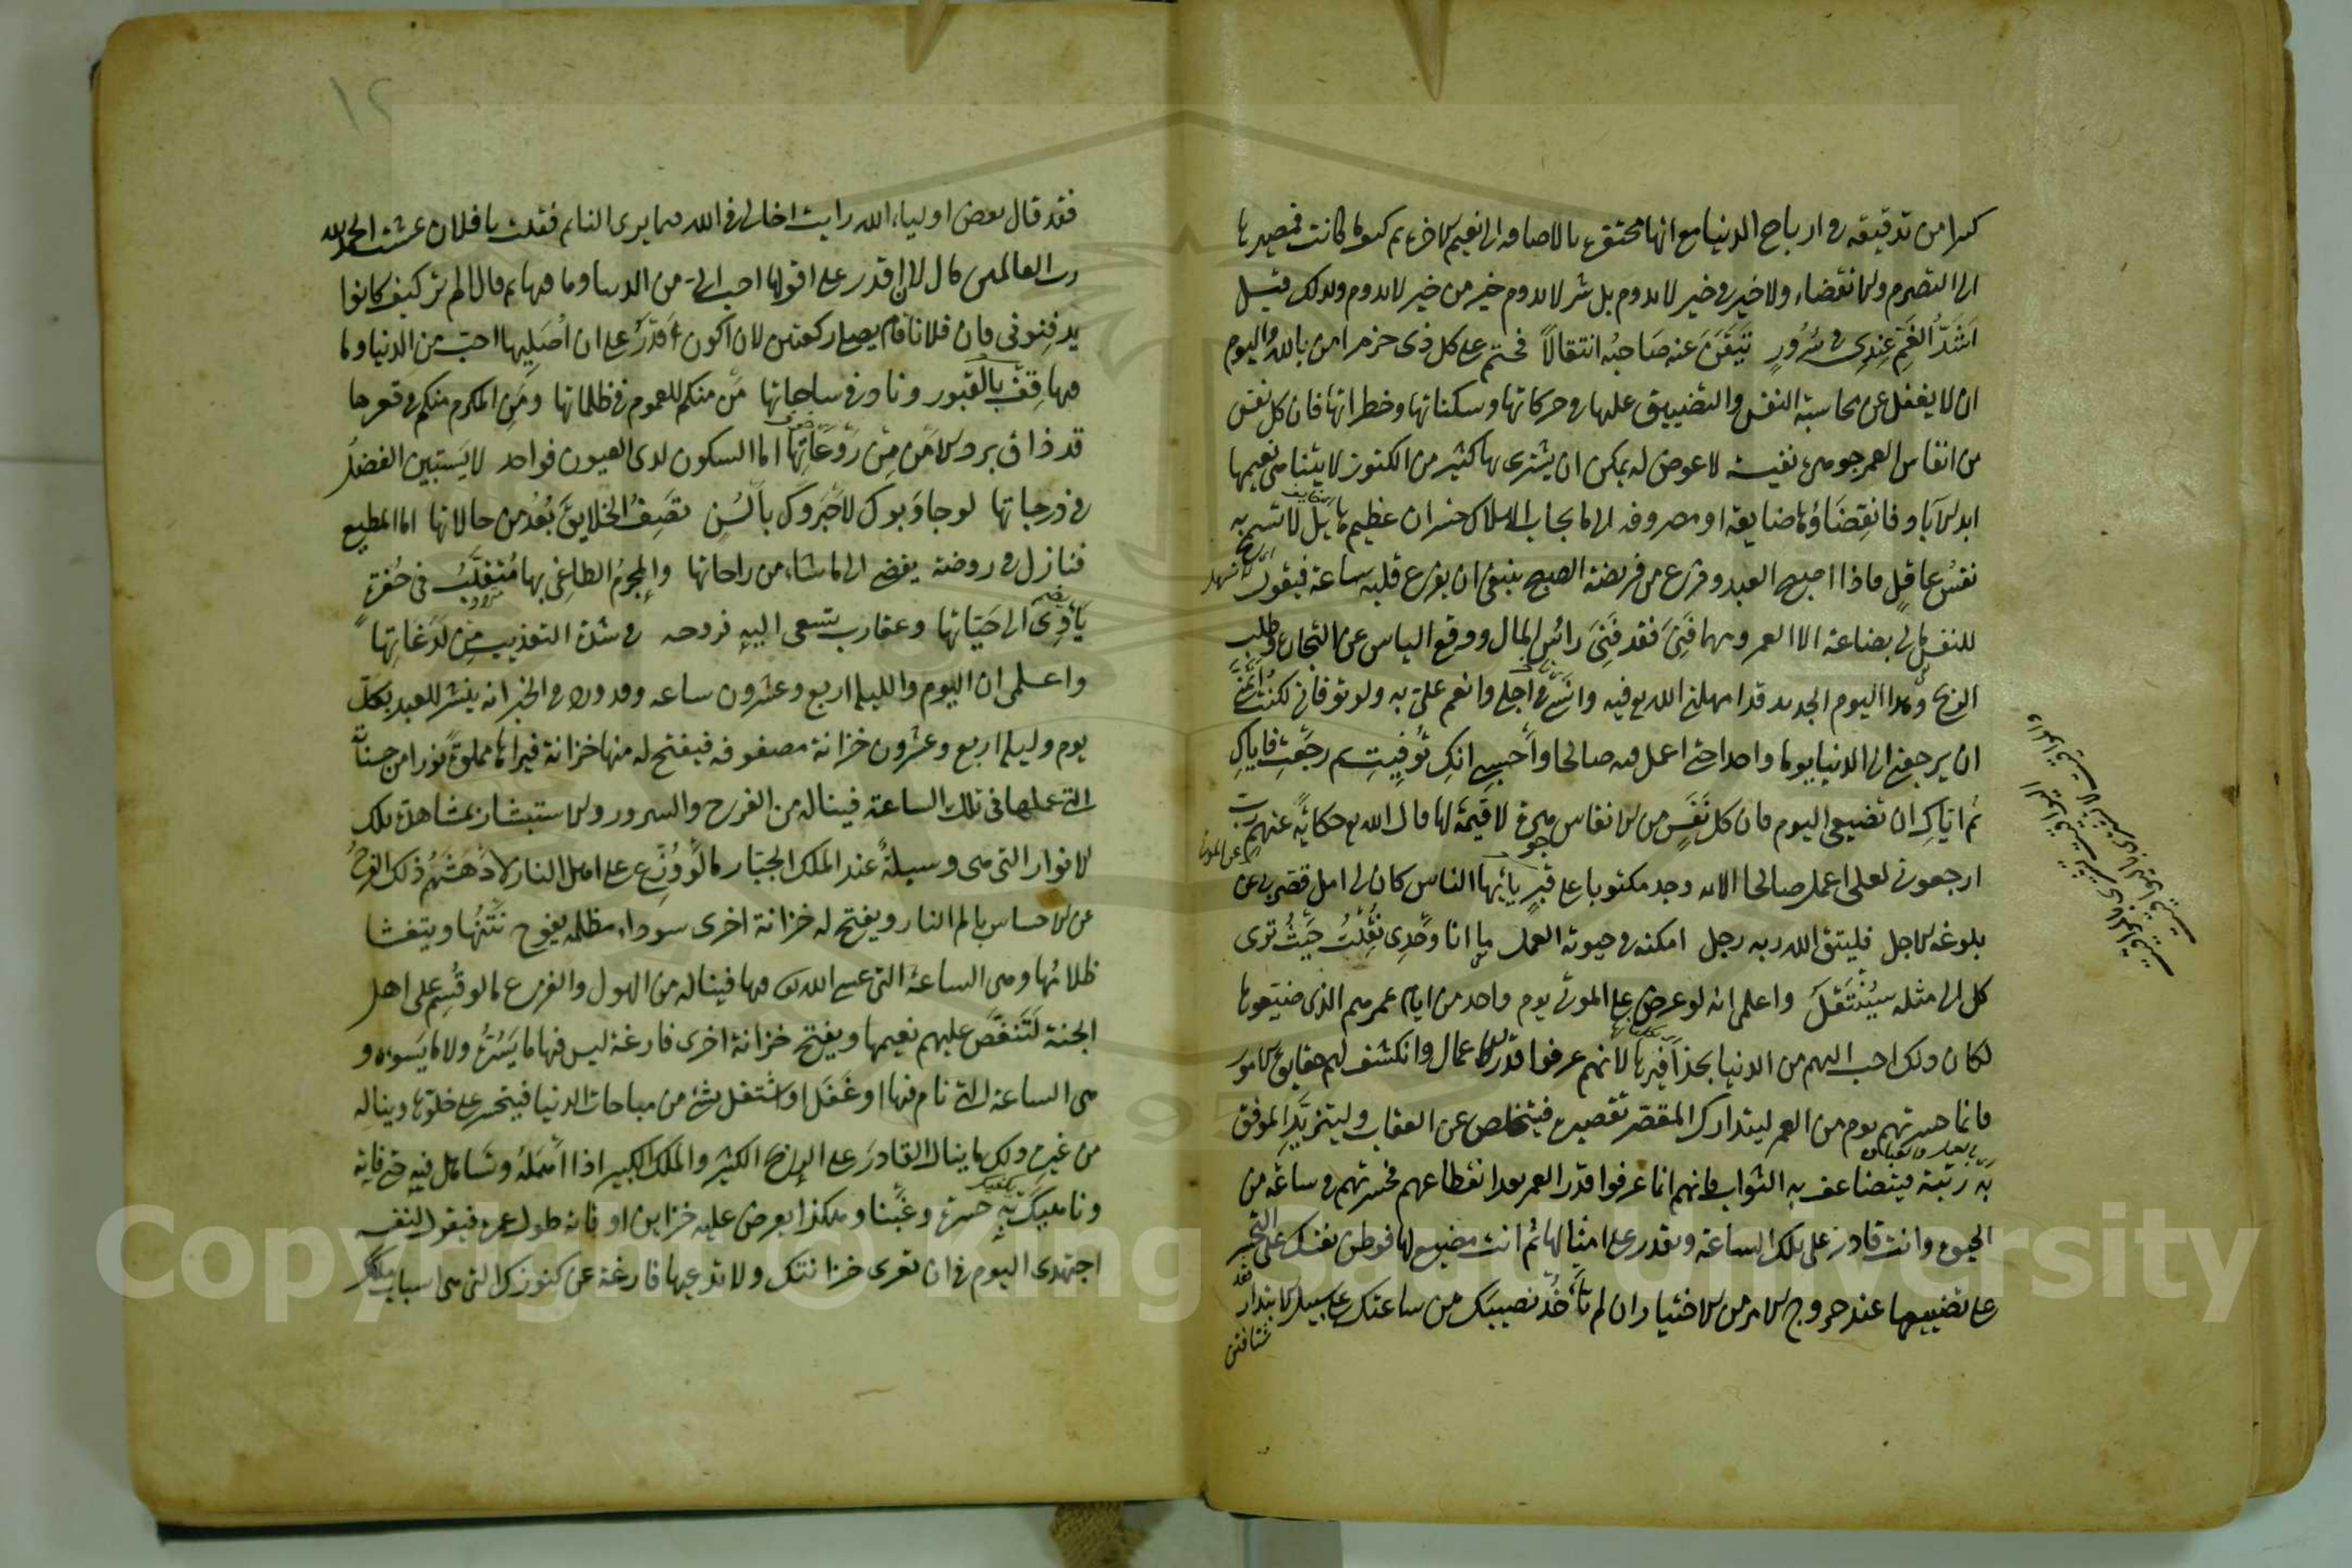 كثيرا من تدقيقه في ارباح الدنيا مع انها محتقرة بالاضافة الى نعيم الاخرة ثم كيف ما كانت فمصيرها
الى التصرم والانقضاء ولا خير في خير لا يدوم بل شر لا يدوم خير من خير لا يدوم ولذلك قيل
اَشَدُّ الغَمِّ عِندِي في سُرُورٍ تَيَقَّنَ عنه صَاحِبُه انتقالاً فحتم على كل ذى حزم امن بالله واليوم
ان لا يغفل عن محاسبة النفس والتضييق عليها في حركاتها وسكناتها وخطراتها فان كل نفس
من انفاس العمر جوهرة نفيسة لا عوض له يمكن ان يشترى بها كثير من الكنوز لا يتناهى نعيمها
ابد الآباد فانقِضَاؤها ضايعة او مصروفة الى ما يجلب الهلاك خسران عظيم هايل لا تسمح به
نفسُ عاقلٍ فاذا اصبح العبد وفرغ من فريضة الصبح ينبغى ان يفرغ قلبه ساعة فيقول
للنفس مالى بضاعة الا العمر ومهما فَنِىَ فقد فَنِىَ رأس المال ووقع اليأس عن التجارة وطلب
الربح وهذا اليوم الجديد قد امهلنى الله تع فيه وانسى في اجلى وانعم علىّ به ولو توفانى لكنت اتمنى
ان يرجعنى الى الدنيا يوما واحدا حتى اعمل فيه صالحا وأحسبى انكِ تُوفيتِ ثم رجعتِ فاياكِ
ثم اياكِ ان تضيعى اليوم فان كل نَفَسٍ من الانفاس جوهرة لا قيمة لها قال الله تع حكايةً عنهم رب
ارجعون لعلى اعمل صالحا الآيه وجد مكتوبا على قبرٍ يا ايها الناس كان لى امل قصر بى عن
بلوغه الاجل فليتق الله ربه رجل امكنه في حيوته العمل ما انا وَحْدِى نُقِلْتُ حَيْثُ ترى
كل الى مثله سيُنْتَقَلُ واعلمى انه لو عرض على الموتى يوم واحد من ايام عمرهم الذى ضيّعوها
لكان ذلك احب اليهم من الدنيا بحذافيرها لانهم عرفوا قدر الاعمال وانكشف لهم حقايق الامور
فانما حسرتهم يوم من العمر ليتدارك المقصّر تقصيره فيتخلص عن العقاب وليتزيد الموفق
به رتبة فيتضاعف به الثواب فانهم انما عرفوا قدر العمر بعد انقطاعهم فحسرتهم في ساعة من
الحيوة وانت قادر على تلك الساعة وتقدر على امثالها ثم انت مضيع لها فوطن نفسك على التحسر
على تضييعها عند خروج الامر من الاختيار ان لم تأخُذ نصيبك من ساعتك على سبيل الابتدار
فقد قال بعض اولياء الله رايت اخا لى في الله فيما يرى النائم فقلت يا فلان عشت الحمد لله
رب العالمين قال لان اقدر على اقولها احب الى من الدنيا وما فيها ثم قال الم تر كيف كانوا
يدفنونى فان فلانا قام يصلى ركعتين لان اكون اقدر على ان اُصَليها احبّ من الدنيا وما
فيها قِف بالقبور وناد في ساحاتها مَن منكم المغموم في ظلماتها ومَنِ المكرم منكم في قعرها
قد ذاق برد الامن مِن رَوعَاتِها اما السكون لدى العيون فواحد لا يَستبين الفضلُ
في درجاتها لو جاوَبوك لاخبَروك بألسُن تصف الخلايقَ بَعُد من حالاتها اما المطيع
فنازل في روضة يفضى الى ما شاء من راحاتها والمجرمُ الطاغى بها مُتَقلِّبٌ في حُفرةٍ
يَأوى الى حَيّاتها وعقارب تسعى اليهِ فروحه في شدة التعذيب من لَدَغَاتِها
واعلمى ان اليوم والليلة اربع وعشرون ساعة وقد ورد في الخبر انه ينشر للعبد بكل
يوم وليلة اربع وعشرون خزانة مصفوفة فيفتح له منها خزانة فيراها مملوة نورا من حسناته
التى عملها فى تلك الساعة فيناله من الفرح والسرور والاستبشار بمشاهدة تلك
الانوار التى هى وسيلةٌ عند الملك الجبّار ما لَو وُزّع على اهل النار لأدهَشَهُم ذلك الفرحُ
عن الاحساس بالم النار ويفتح له خزانة اخرى سوداء مظلمه يفوح نَتَنُها ويتغشا
ظلامُها وهى الساعة التى عصى الله تع فيها فيناله من الهول والفزع ما لو قُسِم على اهل
الجنة لَتَنَغَّصَ عليهم نعيمها ويفتح خزانة اخرى فارغة ليس فيها ما يَسُرّه ولا ما يسوءه و
هى الساعة التى نام فيها او غَفَلَ او اشتغل بشئ من مباحات الدنيا فيتحسر على خلوّها ويناله
من غبن ذلك ما ينال القادرَ على الربح الكثير والملك الكبير اذا اَهمَلَهُ وتساهل فيهِ حتى فاته
وناهيك به حسرة وغَبْنا وهكذا يعرض عليه خزاين اوقاته طول عمره فيقول لنفسه
اجتهدى اليوم في ان تعرى خزانتك ولا تدعيها فارغة عن كنوزك التى هى اسباب ملكك